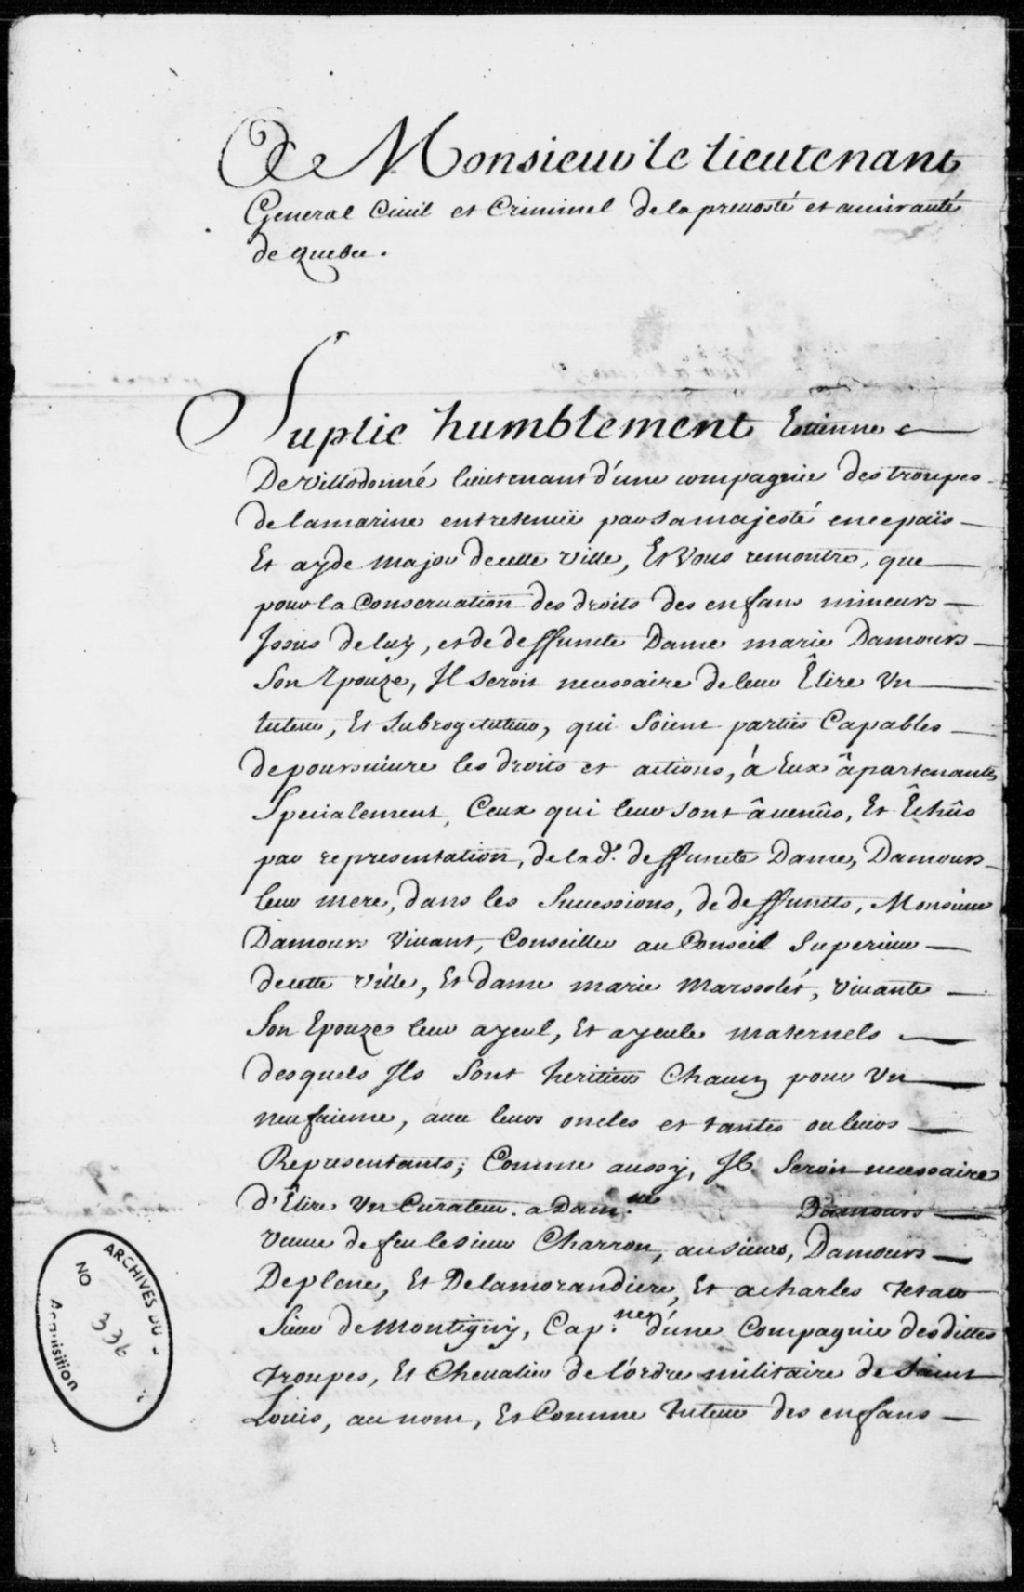 A Monsieur le lieutenant
General Ciuil et Criminel de la preuosté et amirauté
de quebec.
Suplie humblement Etienne
De Villedonné lieutenant d'une compagnie des troupes
de la marine entretenuë par sa majesté en ce païs
Et ayde major de cette ville, Et Vous remontre, que
pour la Conseruation des droits des enfans mineurs
Issus de luy, et de deffuncte Dame marie Damours
Son Epouze, Il seroit necessaire de leur Êlire Un
tuteur, Et Subrogetuteur, qui soient parties Capables
de poursuiure les droits et actions, á Eux âpartenants
Specialement, Ceux qui leur sont âuenûs, Et Êchûs
par representation, de la d.e deffuncte Dame, Damours
leur mere, dans les Successions, de deffuncts, Monsieur
Damours Viuant, Conseiller au Conseil Superieur
de cette Ville, Et dame marie Marsolét, viuante
Son Epouze leur ayeul, Et ayeule maternels
desquels Ils sont heritiers Chacun pour Un
neufuieme, auec leurs oncles et tantes ou leurs
Representants; Comme aussy, Il Seroit necessaire
d'Êlire Un Curateur. a Dam.elle Damours
Veuue de feu le sieur Charron, au sieurs, Damours
De plene, Et De la morandiere, Et a charles
Sieur de Montigny, Cap.nes d'une Compagnie des dittes
troupes, Et Cheualier de l'ordre militaire de Saint
Louis, au nom, Et Comme tuteur des enfans
ARCHIVES DU
NO
336
Acquisition